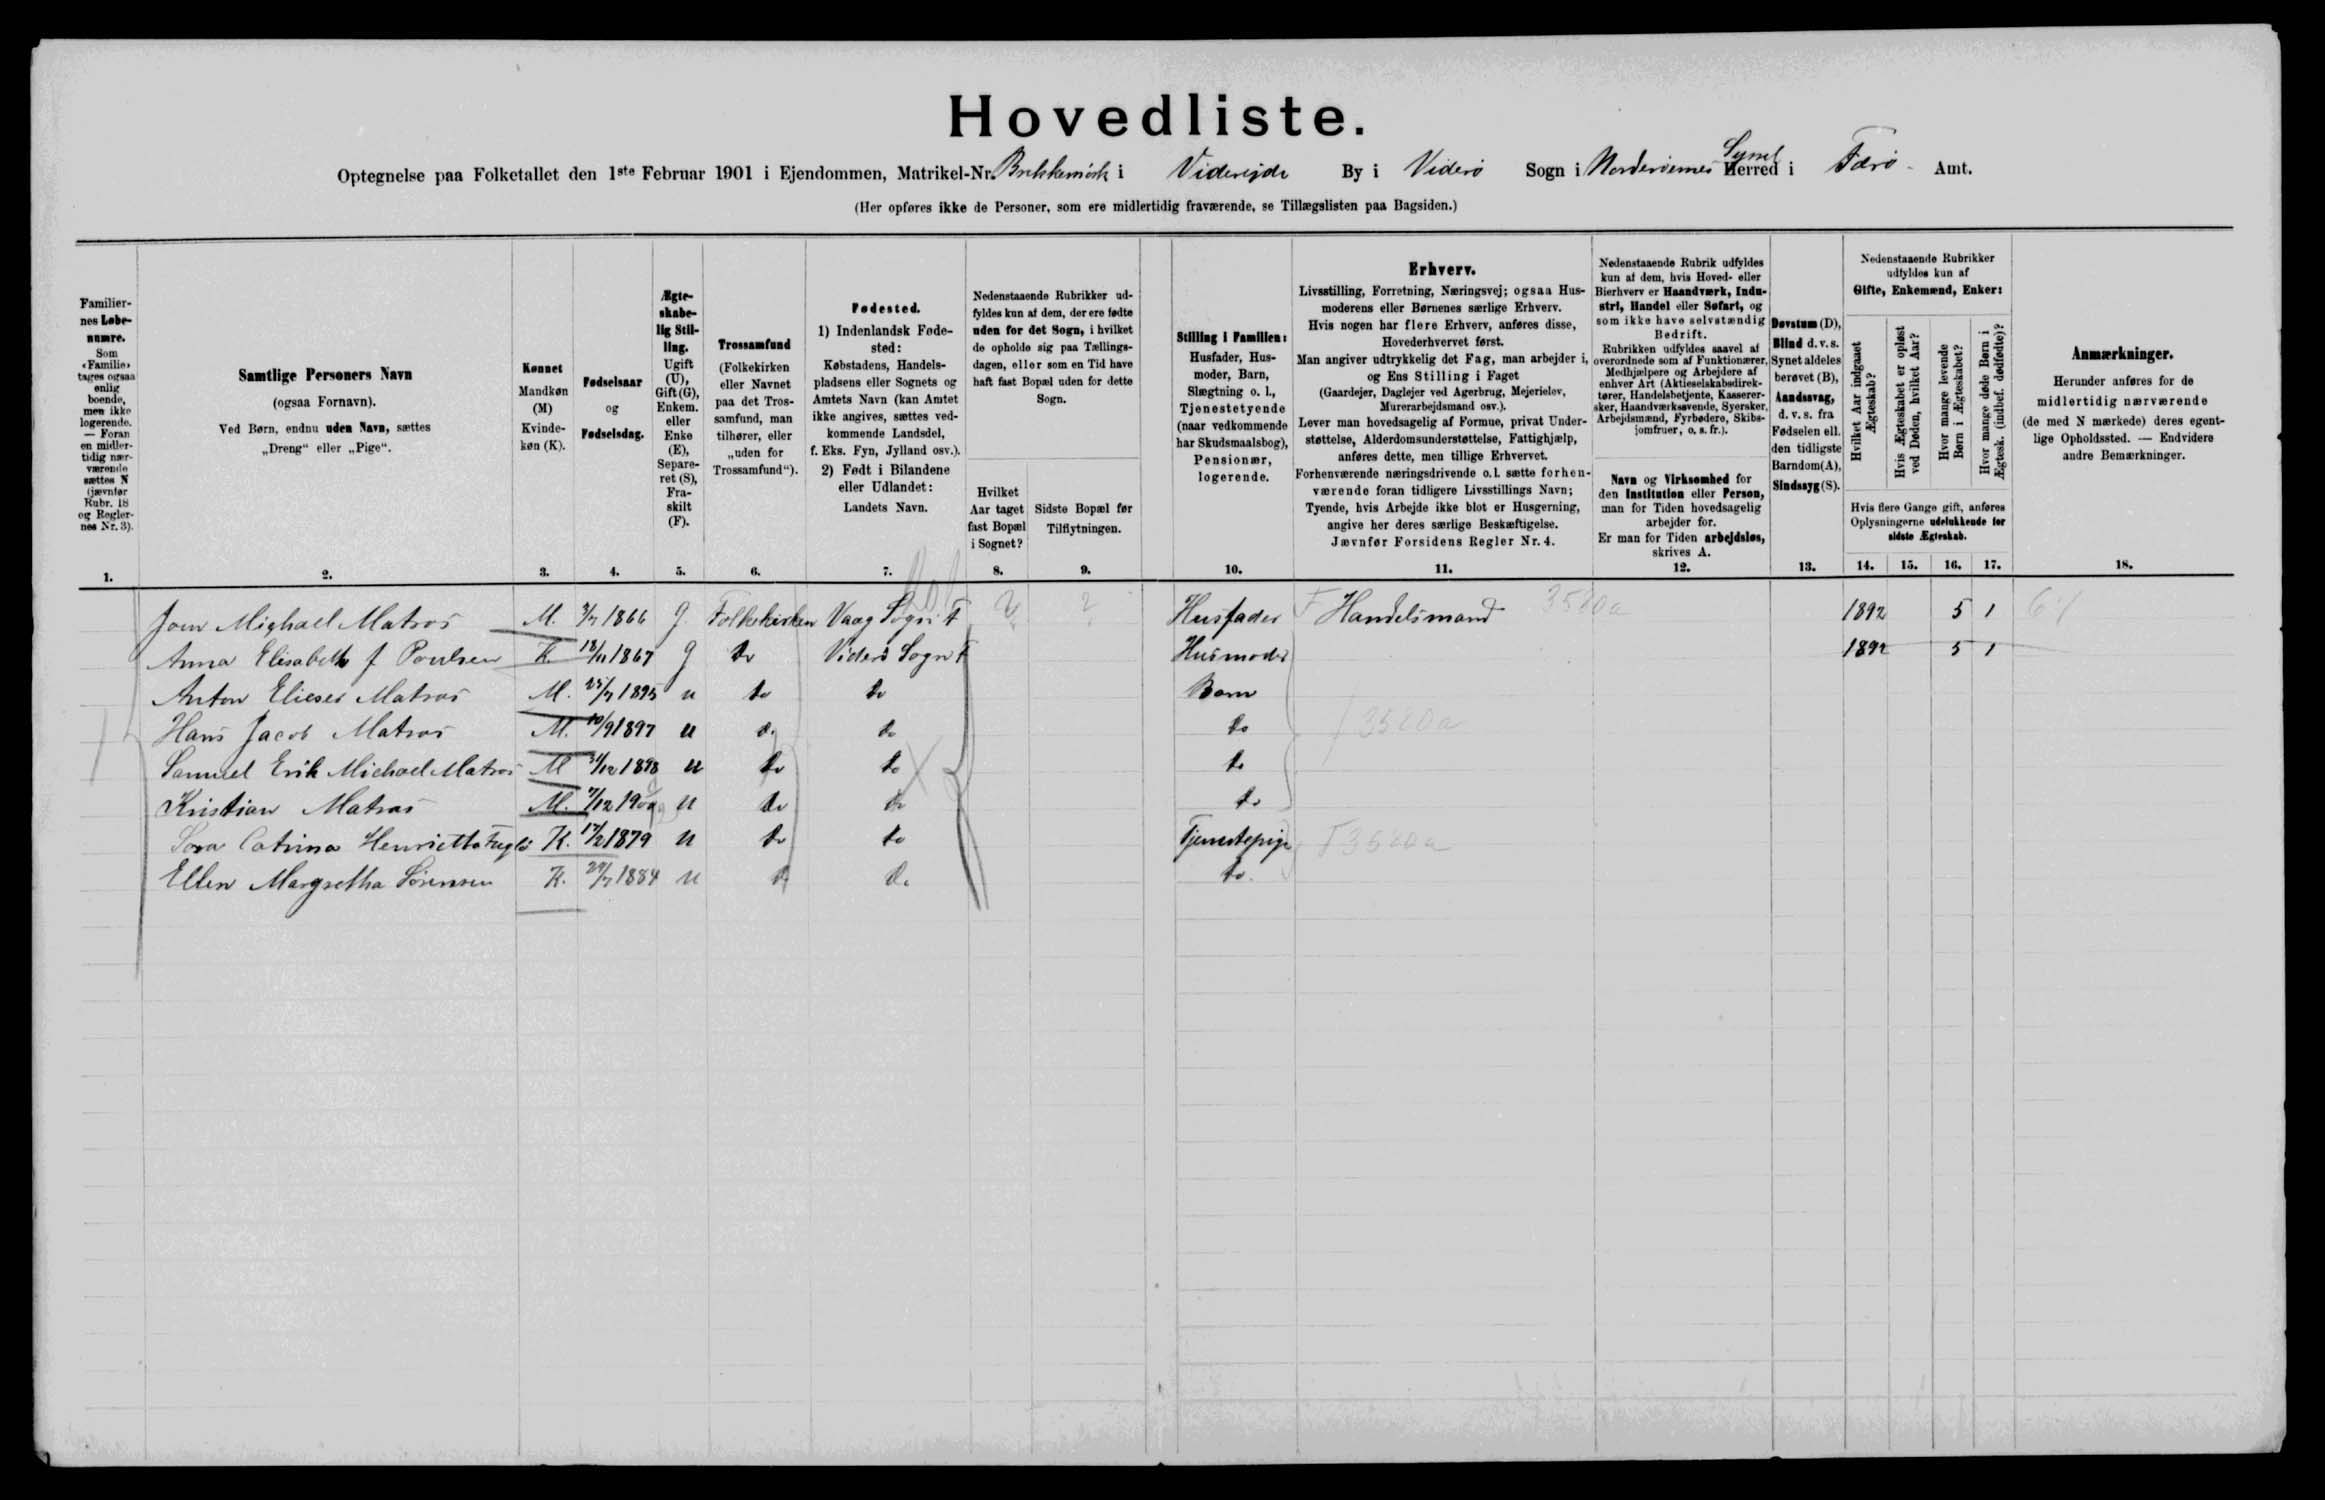 Hovedliste.
Optegnelse paa Folketallet den 1ste Februar 1901 i Ejendommen, Matrikel-Nr. i Viderejde By i Viderö Sogn i Norderöernes Syssel Herred i Færö Amt.
(Her opføres ikke de Personer, som ere midlertidig fraværende, se Tillægslisten paa Bagsiden.)
Familiernes Løbenumre.
Som «Familie» tages ogsaa enlig boende, men ikke logerende. — Foran en midlertidig nærværende sættes N (jævnfør Rubr. 18 og Reglernes Nr. 3).
1.
Samtlige Personers Navn
(ogsaa Fornavn).
Ved Børn, endnu uden Navn, sættes „Dreng“ eller „Pige“.
2.
Kønnet
Mandkøn (M)
Kvindekøn (K).
3.
Fødselsaar og Fødselsdag.
4.
Ægteskabelig Stilling.
Ugift (U), Gift (G), Enkem. eller Enke (E), Separeret (S), Fraskilt (F).
5.
Trossamfund
(Folkekirken eller Navnet paa det Trossamfund, man tilhører, eller „uden for Trossamfund“).
6.
Fødested.
1) Indenlandsk Fødested:
Købstadens, Handelspladsens eller Sognets og Amtets Navn (kan Amtet ikke angives, sættes vedkommende Landsdel, f. Eks. Fyn, Jylland osv.).
2) Født i Bilandene eller Udlandet:
Landets Navn.
7.
Nedenstaaende Rubrikker udfyldes kun af dem, der ere fødte uden for det Sogn, i hvilket de opholde sig paa Tællingsdagen, eller som en Tid have haft fast Bopæl uden for dette Sogn.
Hvilket Aar taget fast Bopæl i Sognet?
8.
Sidste Bopæl før Tilflytningen.
9.
Stilling i Familien:
Husfader, Husmoder, Barn, Slægtning o. l., Tjenestetyende (naar vedkommende har Skudsmaalsbog), Pensionær, logerende.
10.
Erhverv.
Livsstilling, Forretning, Næringsvej; ogsaa Husmoderens eller Børnenes særlige Erhverv.
Hvis nogen har flere Erhverv, anføres disse, Hovederhvervet først.
Man angiver udtrykkelig det Fag, man arbejder i, og Ens Stilling i Faget
(Gaardejer, Daglejer ved Agerbrug, Mejerielev, Murerarbejdsmand osv.).
Lever man hovedsagelig af Formue, privat Understøttelse, Alderdomsunderstøttelse, Fattighjælp, anføres dette, men tillige Erhvervet.
Forhenværende næringsdrivende o. l. sætte forhenværende foran tidligere Livsstillings Navn;
Tyende, hvis Arbejde ikke blot er Husgerning, angive her deres særlige Beskæftigelse.
Jævnfør Forsidens Regler Nr. 4.
11.
Nedenstaaende Rubrik udfyldes kun af dem, hvis Hoved- eller Bierhverv er Haandværk, Industri, Handel eller Søfart, og som ikke have selvstændig Bedrift.
Rubrikken udfyldes saavel af overordnede som af Funktionærer, Medhjælpere og Arbejdere af enhver Art (Aktieselskabsdirektører, Handelsbetjente, Kasserersker, Haandværkssvende, Syersker, Arbejdsmænd, Fyrbødere, Skibsjomfruer, o. s. fr.).
Navn og Virksomhed for den Institution eller Person, man for Tiden hovedsagelig arbejder for.
Er man for Tiden arbejdsløs, skrives A.
12.
Døvstum (D), Blind d. v. s. Synet aldeles berøvet (B), Aandssvag, d. v. s. fra Fødselen ell. den tidligste Barndom (A), Sindssyg (S).
13.
Nedenstaaende Rubrikker udfyldes kun af Gifte, Enkemænd, Enker:
Hvilket Aar indgaaet Ægteskab?
Hvis Ægteskabet er opløst ved Døden, hvilket Aar?
Hvor mange levende Børn i Ægteskabet?
Hvor mange døde Børn i Ægtesk. (indbef. dødfødte)?
Hvis flere Gange gift, anføres Oplysningerne udelukkende for sidste Ægteskab.
14. 15. 16. 17.
Anmærkninger.
Herunder anføres for de midlertidig nærværende (de med N mærkede) deres egentlige Opholdssted. — Endvidere andre Bemærkninger.
18.
Joen Mighael Matras M. 3/7 1866 G Folkekirken Vaag Sogn F ? ? Husfader F Handelsmand 3520a 1892 5 1 6/1
Anna Elisabeth f Poulsen K. 18/11 1867 G do Viderö Sogn F Husmoder 1892 5 1
Anton Elieser Matras M. 25/7 1895 u do do Barn
Hans Jacob Matras M. 10/9 1897 u do do do 3520a
Samuel Erik Michael Matras M 31/12 1898 u do do do
Kristian Matras M. 7/12 1900 u do do do
Sara Catrina Henrietta Fuglö K. 17/2 1879 u do do Tjenestepige F 3520a
Ellen Margretha Sörensen K. 29/7 1884 u do do do